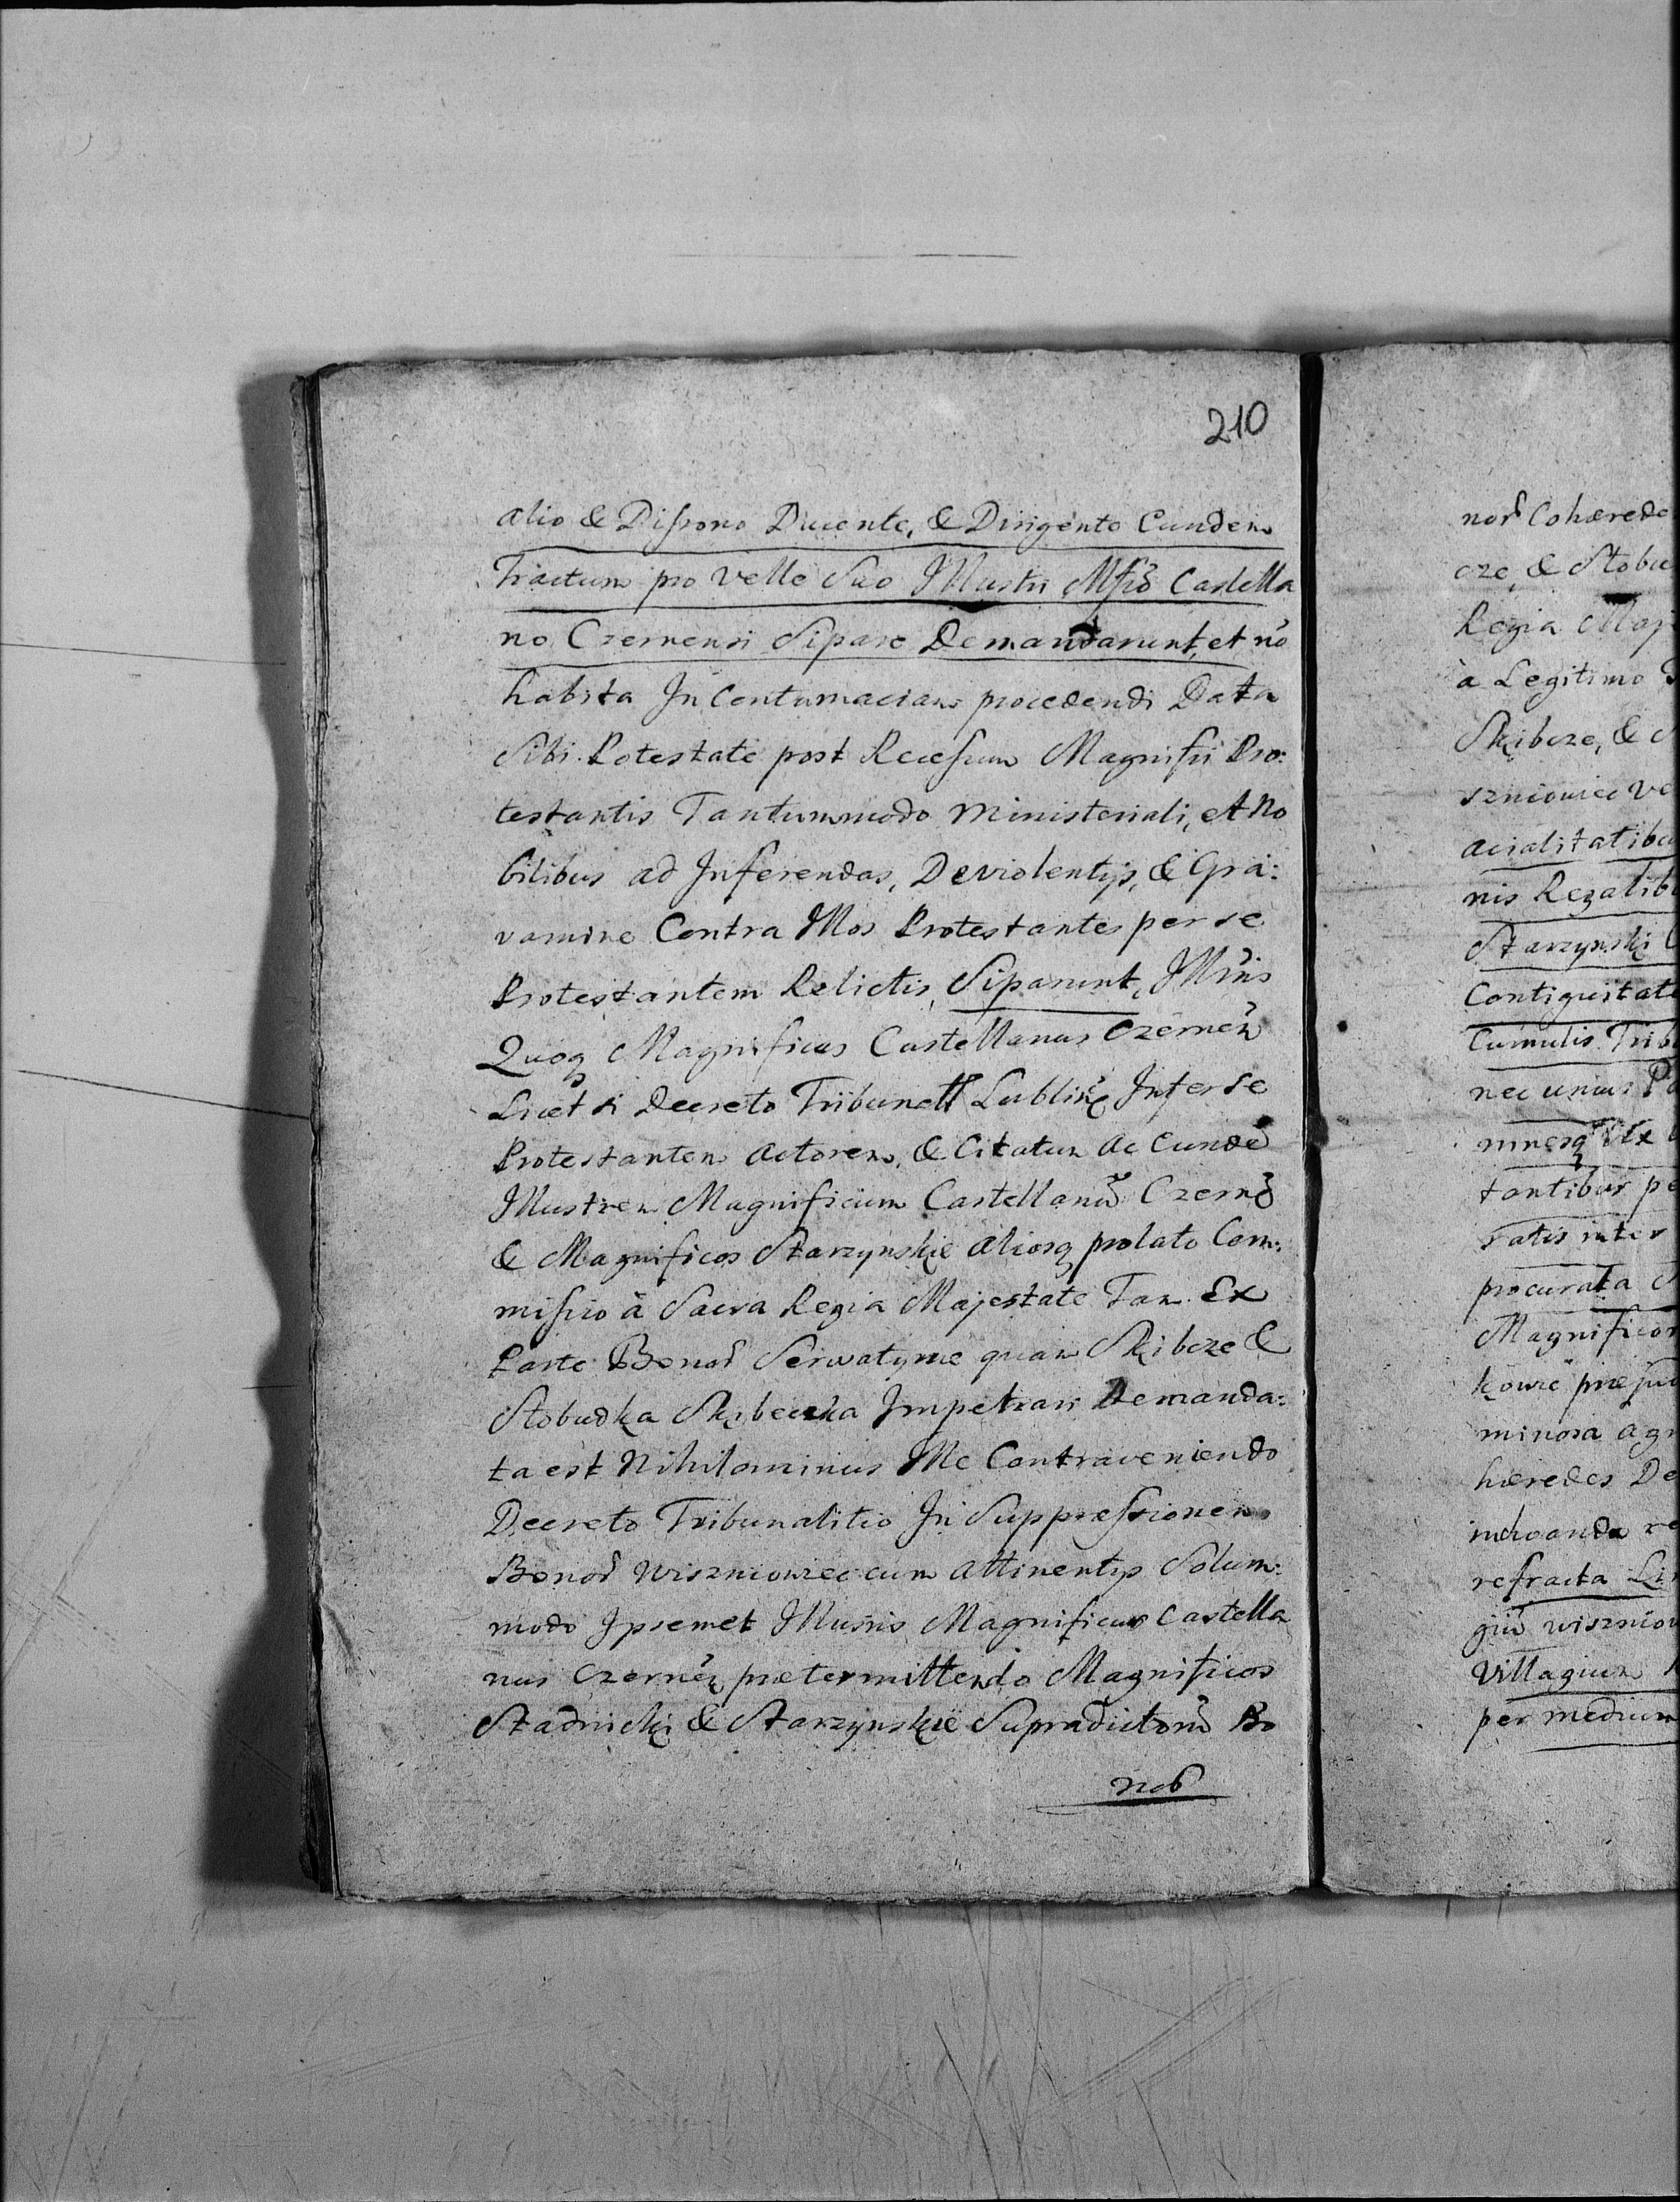 210
alio & Dissono Ducente, & Dirigente Eundem
Tractum pro Velle Suo Illustri Mfcō Castella
no Czernensi Sipare Demandarunt, et nō
habita In Contumaciam procedendi Data
Sibi Potestate post Recessum Magnifici Pro:
testantis Tantummodo Ministeriali, et No
bilibus ad Inferendas, De violentijs, & Gra:
vamine Contra Illos Protestantes per se
Protestantem Relictis, Siparunt, Illris
Quoq Magnificus Castellanus Czerneñ
Licet si Decreto Tribunall Lubliñ Inter se
Protestantem Actorem, & Citatum ac Eundē
Illustrem Magnificum Castellanū Czernē
& Magnificos Starzynskie aliosq prolato Com:
missio à Sacra Regia Majestate Tam Ex
Parte Bonor Serwatynce quam Skibcze &
Stobudka Skibecka Impetrari Demanda:
ta est Nihilominus Ille Contraveniendo
Decreto Tribunalitio In Suppressionem
Bonor Wiszniowiec cum attinentijs Solum:
modo Ipsemet Illusris Magnificus Castella
nus Czerneñ prætermittendo Magnificos
Stadnicki & Starzynskie Supradictorū Bo
nor
nor Cohærede
cze, & Stobu
Regia Maj
à Legitimo
Skibcze, &
szniowiec ve
acialitatibu
nis Regalib
Starzynski
Contiguitat
Cumulis Trib
nec unius P
mnesq Ex
tantibus pe
ratis inter
procurata
Magnificor
kowie præju
minosa ag
hæredes De
inchoanda re
refracta Li
giū wisznio
Villagium
per medium